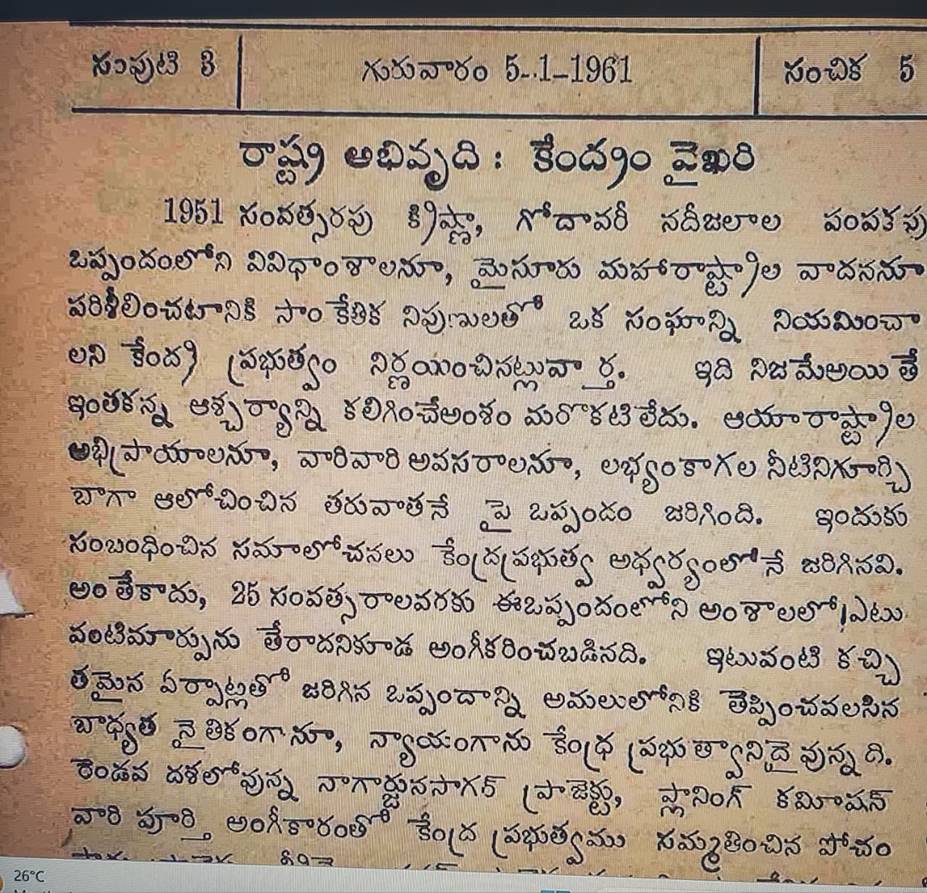 సంపుటి 3 గురువారం 5-.1-1961 సంచిక 5
రాష్ట్ర అభివృది : కేంద్రం వైఖరి
1951 సంవత్సరపు క్రిష్ణా, గోదావరీ నదీజలాల పంపకపు
ఒప్పందంలోని వివిధాంశాలనూ, మైసూరు మహారాష్ట్రాల వాదననూ
పరిశీలించటానికి సాంకేతిక నిపుణులతో ఒక సంఘాన్ని నియమించా
లని కేంద్ర ప్రభుత్వం నిర్ణయించినట్లు వార్త. ఇది నిజమేఅయితే
ఇంతకన్న ఆశ్చర్యాన్ని కలిగించేఅంశం మరొకటి లేదు. ఆయా రాష్ట్రాల
అభిప్రాయాలనూ, వారివారి అవసరాలనూ, లభ్యంకాగల నీటినిగూర్చి
బాగా ఆలోచించిన తరువాతనే పై ఒప్పందం జరిగింది. ఇందుకు
సంబంధించిన సమాలోచనలు కేంద్రప్రభుత్వ అధ్వర్యంలోనే జరిగినవి.
అంతేకాదు, 25 సంవత్సరాలవరకు ఈఒప్పందంలోని అంశాలలో ఎటు
వంటిమార్పును తేరాదనికూడ అంగీకరించబడినది. ఇటువంటి కచ్చి
తమైన ఏర్పాట్లతో జరిగిన ఒప్పందాన్ని అమలులోనికి తెప్పించవలసిన
బాధ్యత నైతికంగానూ, న్యాయంగాను కేంద్ర ప్రభుత్వానిదై వున్నది.
రెండవ దశలోవున్న నాగార్జునసాగర్ ప్రాజెక్టు, ప్లానింగ్ కమీషన్
వారి పూర్తి అంగీకారంతో కేంద్ర ప్రభుత్వము సమ్మతించిన పోచం
26°C